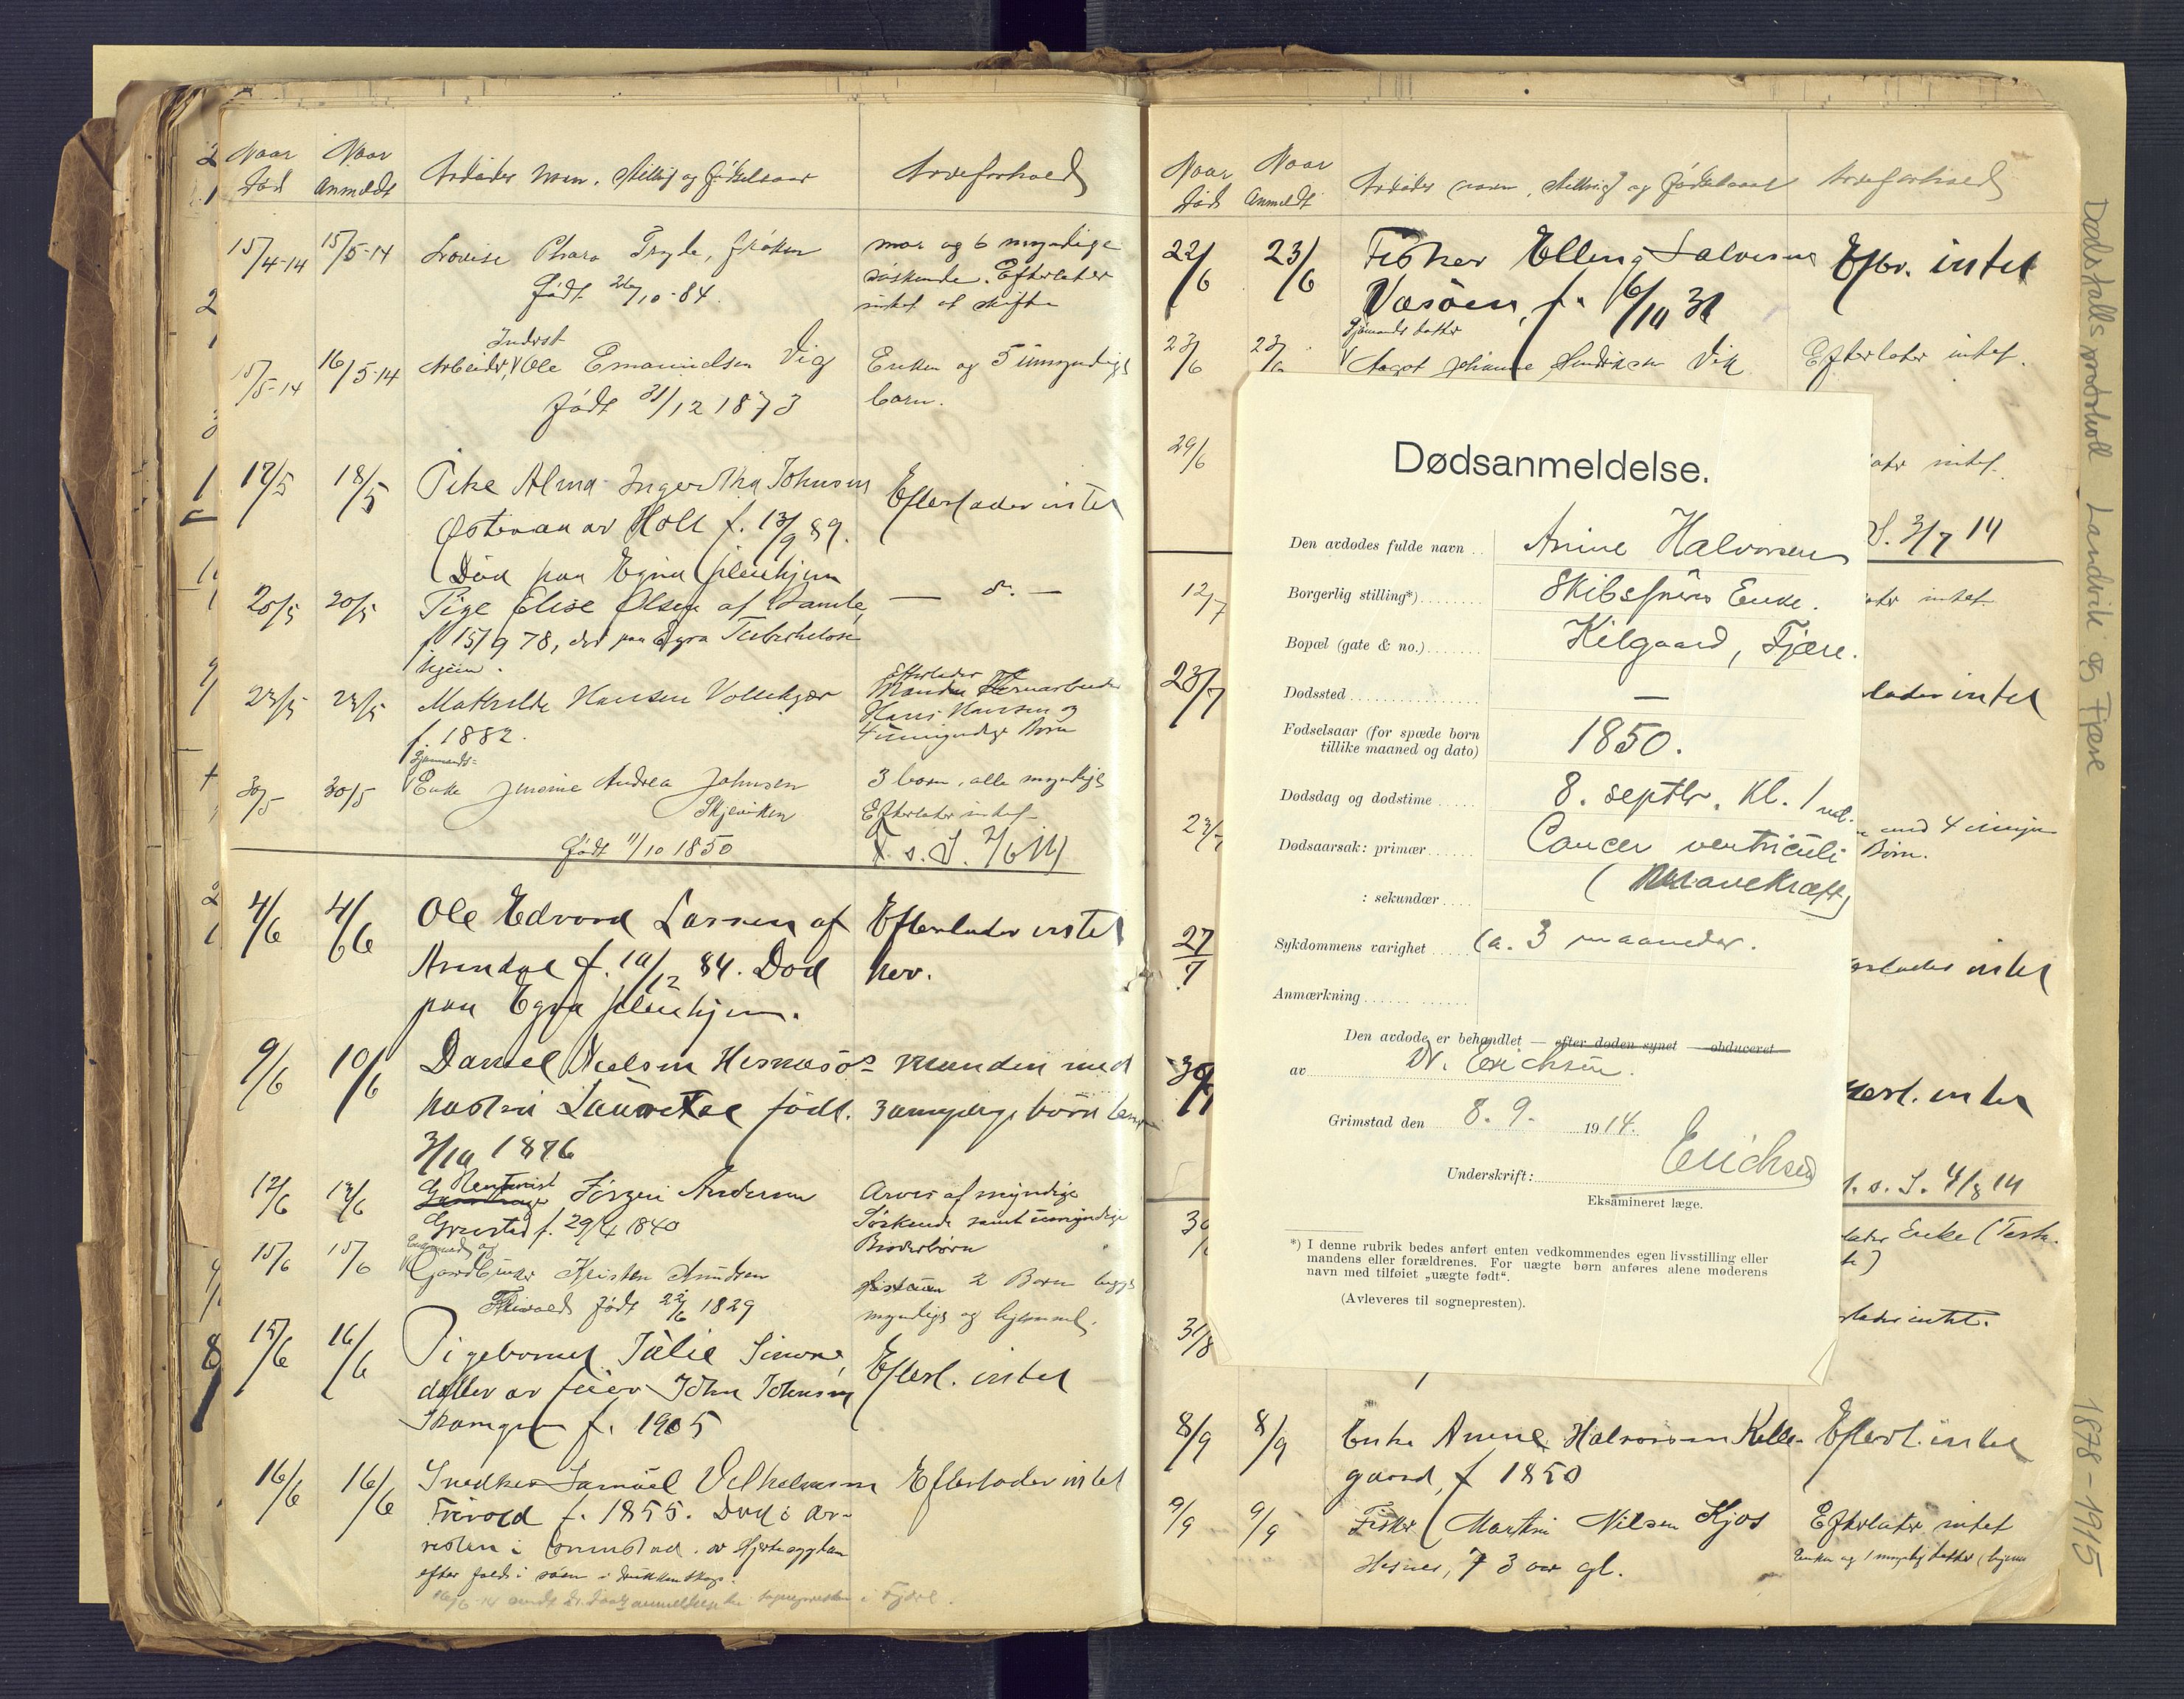 Naar Naar
Død Anmeldt Avdødes navn, stilling og fødselsaar Arveforhold
15/4-14 15/5-14 Lovise Thara Tryde, frøken mor og 6 myndige
søskende. Efterlater
født 26/10-84. intet at skifte
Inderst
15/5-14 16/5-14 Arbeider, Ole Emanuelsen Vig Enken og 5 umyndige
født 31/12 1873 barn.
17/5 18/5 Pike Alma Ingertha Johnsen Efterlader intet
Østeraa av Holt f. 13/9 89.
Død paa Egra pleiehjem
20/5 20/5 Pige Elise Olsen af Bamle, — do. —
f. 15/9 78, død paa Egra Tuberkulose
hjem.
23/5 23/5 Mathilde Hansen Vollekjær efterlader Manden
Hans Hansen og
f. 1882. 4 umyndige Børn
Sjømands-
30/5 30/5 Enke Jensine Andrea Johnsen 3 barn, alle myndige
Skjeviken Efterlater intet
født 11/10 1850 T. s. S. 2/6 14
4/6 4/6 Ole Edvard Larsen af Efterlader intet
Arendal f. 10/12 84. Død her.
paa Egra pleiehjem.
9/6 10/6 Daniel Nielsen Hesnesøs manden med
hustru Lauretse født. 3 umyndige børn
3/10 1876
Rentenist
12/6 12/6 Jørgen Andersen Arves af myndige
Grimstad f. 29/4 1840 Søskende samt umyndige
Broderbørn
Enkemand og
15/6 15/6 Gaardbruker Kristen Knudsen 2 Born begge
Frivold født 22/6 1829 myndige og hjemme.
15/6 16/6 Pigebarnet Julie Simone, Efterl. intet
datter av feier John Johnsen
f. 1905
16/6 16/6 Snedker Samuel Vilhelmsen Efterlader intet
Frivold f. 1855. Død i ar-
resten i Grimstad. av Hjerteonden
efter fald i søen i drukkenskap.
16/6-14 sendt dødsanmeldelse til sognepresten i Fjære.
Naar Naar
Død Anmeldt Avdødes navn, stilling og fødselsaar Arveforhold
22/6 23/6 Fisker Elling Salvesen Efter. intet
Vasøen, f. 16/10 31
Sjømands datter
23/6 23/6 Aagot Johanne Hendriksen Vik Efterlater intet.
29/6 later intet.
S. 3/7 14
12/7 later intet
23/7 lader intet
med 4 umyn
Børn.
27/7 erlader intet
30/7 terl. intet
T. s. S. 4/8 14
lader Enke (Testa.
31/8 rlader intet.
Dødsanmeldelse.
Den avdødes fulde navn .. Anine Halvorsen
Borgerlig stilling*) ........ Skibsførers Enke.
Bopæl (gate & no.) ....... Kilgaard, Fjære.
Dødssted ................. —
Fødselsaar (for spæde børn
tillike maaned og dato) 1850.
Dødsdag og dødstime ..... 8. septbr. Kl. 1 md.
Dødsaarsak: primær ...... Cancer ventriculi
: sekundær .... (Mavekræft)
Sykdommens varighet ..... ca. 3 maaneder.
Anmærkning ...... ......
Den avdøde er behandlet — efter døden synet — obduceret
av N. Erichsen.
Grimstad den 8. 9. 1914.
Underskrift: Erichsen
Eksamineret læge.
*) I denne rubrik bedes anført enten vedkommendes egen livsstilling eller
mandens eller forældrenes. For uægte børn anføres alene moderens
navn med tilføiet „uægte født“.
(Avleveres til sognepresten).
8/9 8/9 Enke Anine Halvorsen Kille- Efterl. intet
gaard, f 1850
9/9 9/9 Fisker Martin Nilsen Kjos Efterlater intet
Hesnes, 73 aar gl. Enken og 1 myndig datter, hjemme
Dødsfallsprotokoll Landvik og Fjære
1878-1915